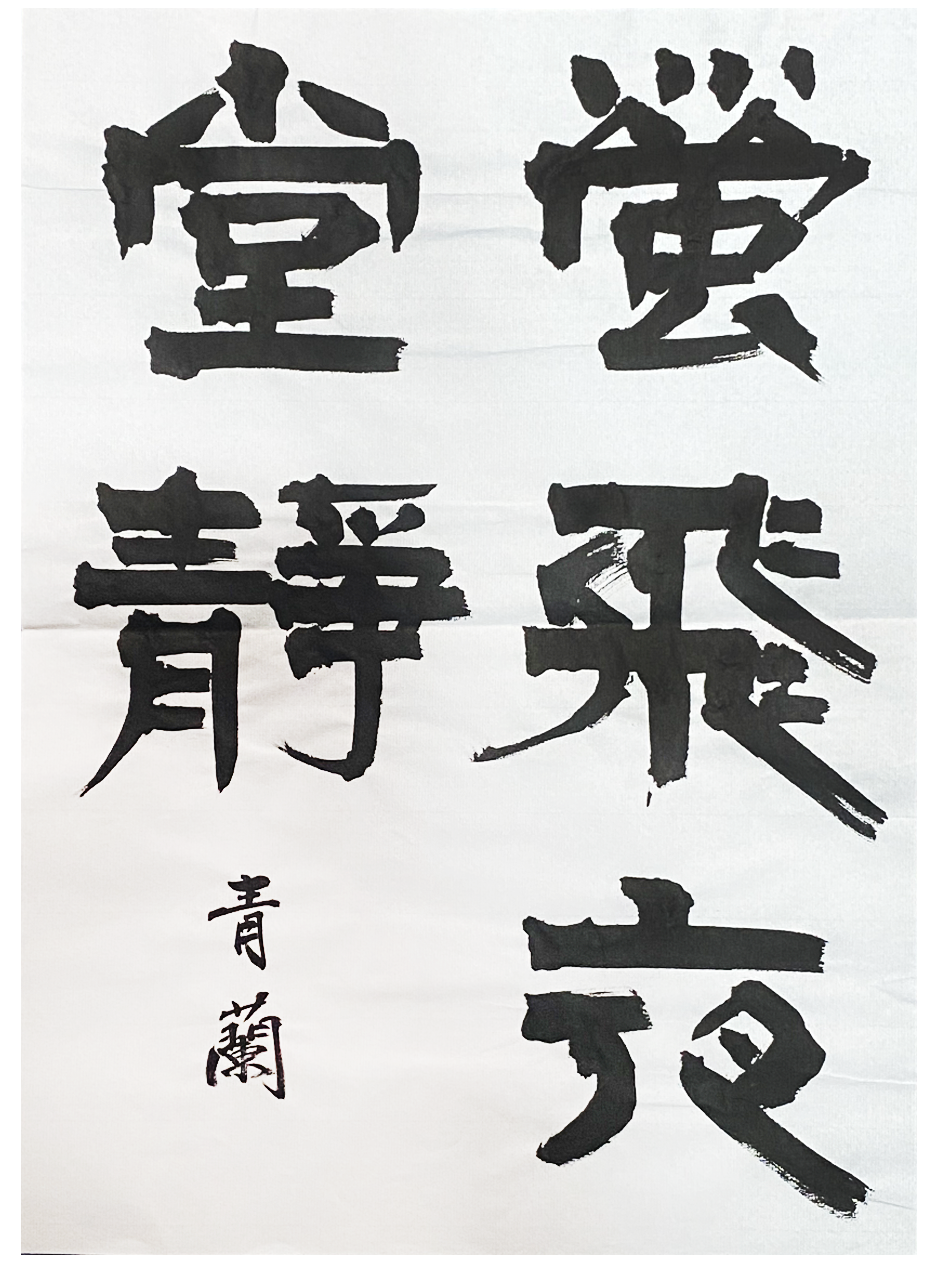 螢飛夜
堂靜
青蘭